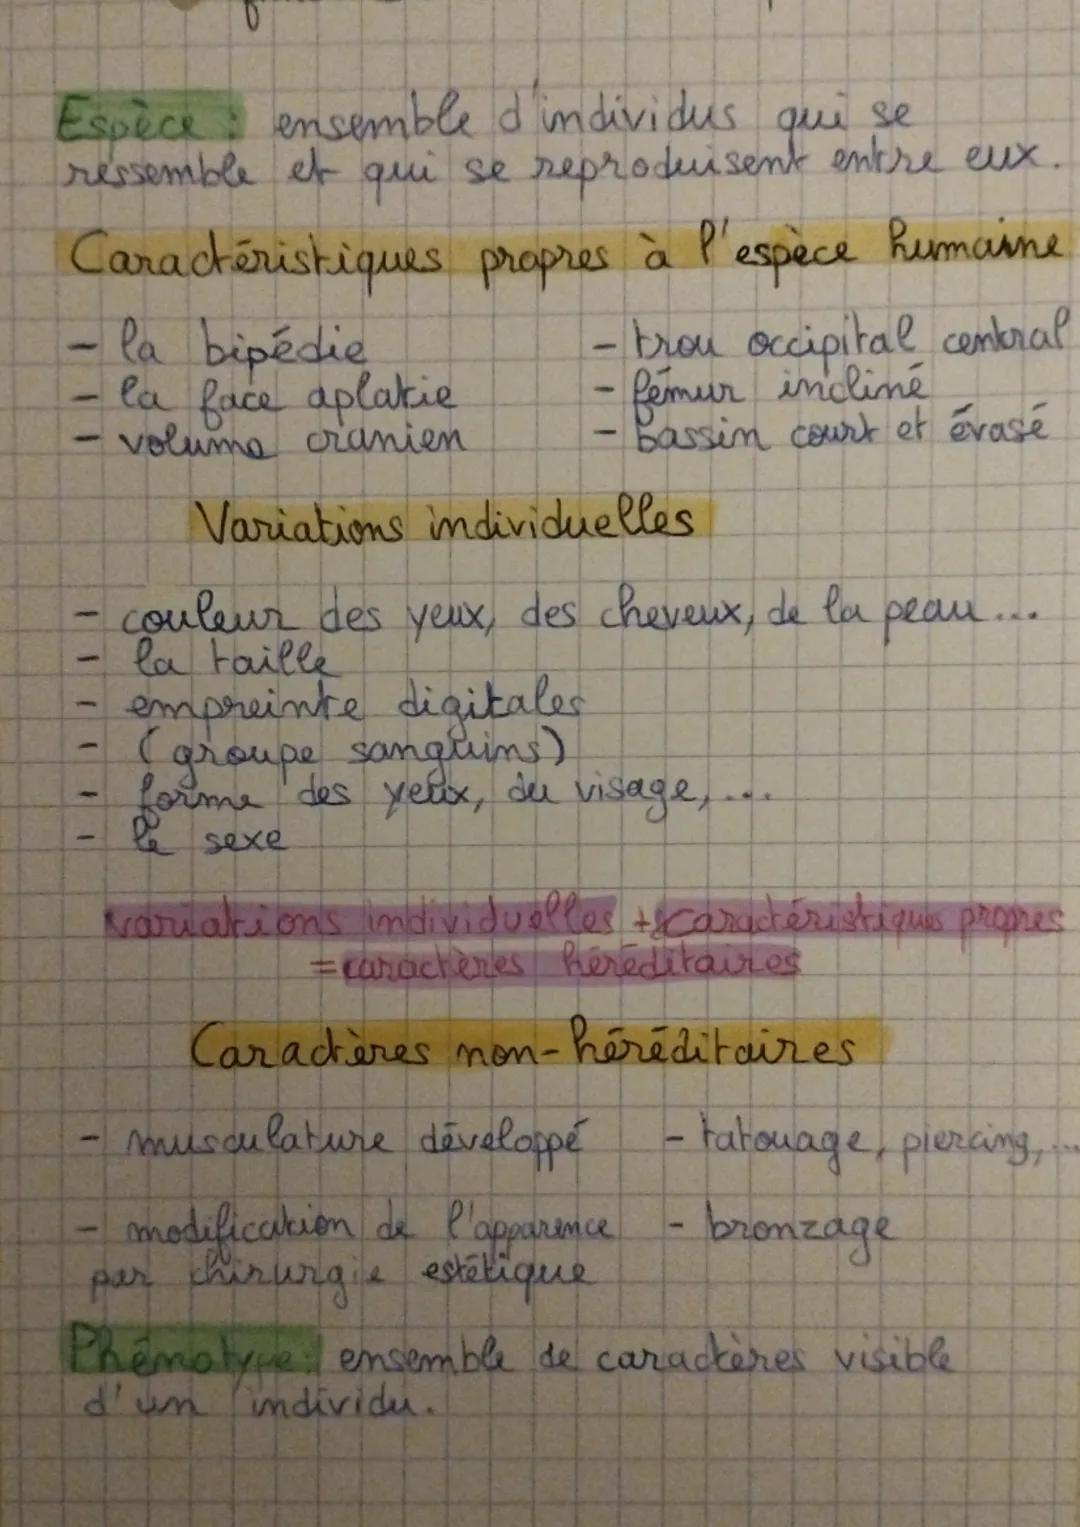 Espèce : ensemble d'individus qui se
ressemble et qui se reproduisent entre eux.
Caractéristiques propres à l'espèce humaine
- la bipédie
- la face aplatie
- volume cranien
- trou occipital central
- fémur incliné
- bassin court et évasé
Variations individuelles
- couleur des yeux, des cheveux, de la peau...
- la taille
- empreinte digitales
- (groupe sanguins)
- forme des yeux, du visage,...
- le sexe
variations individuelles + caractéristiques propres
= caractères héréditaires
Caractères non-héréditaires
- musculature développé
- tatouage, piercing,...
- modification de l'apparence
par chirurgie estétique
- bronzage
Phénotype: ensemble de caractères visible
d'un individu.